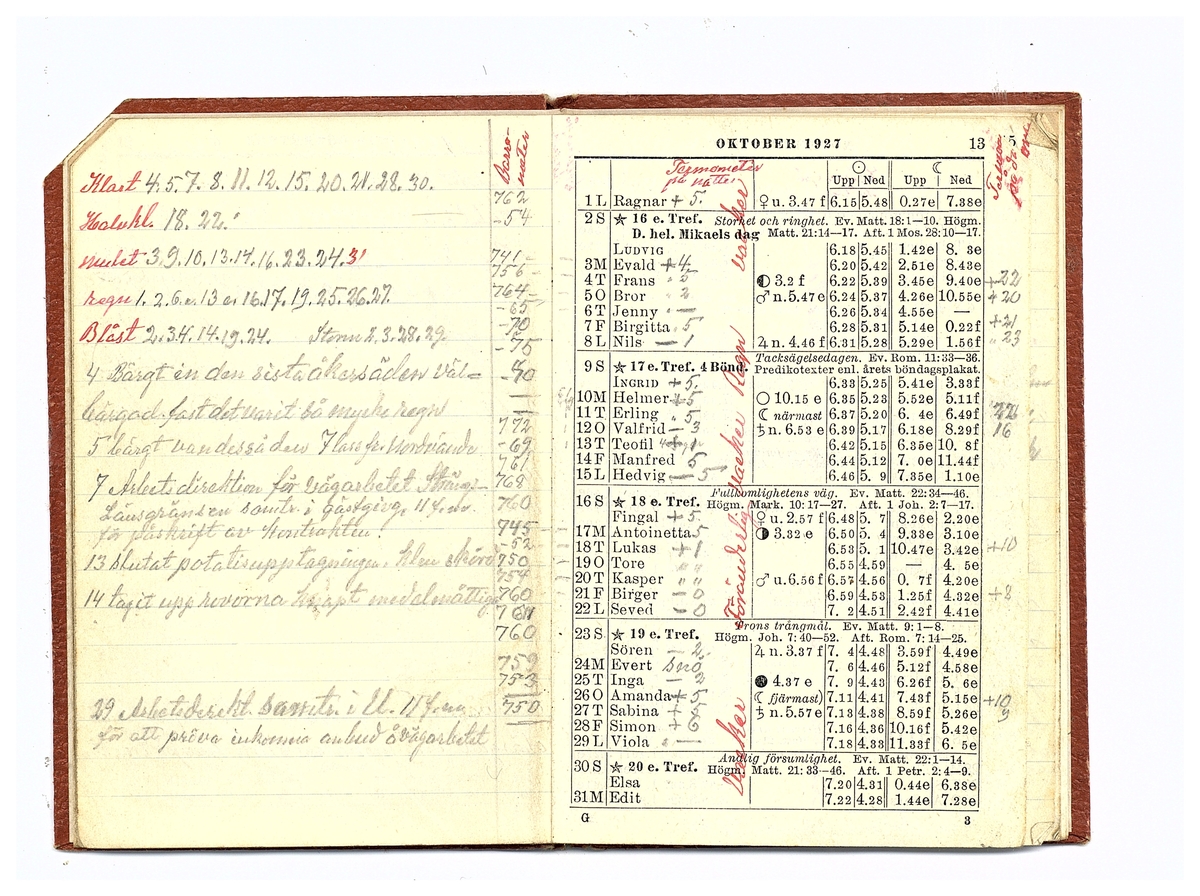 Klart 4.5.7.8.11.12.15.20.21.28.30.
Halvkl. 18.22.
mulet 3.9.10.13.14.16.23.24.31
regn 1.2.6.e.13 e.16.17.19.25.26.27.
Blåst 2.3.4.14.19.24. Storm 2.3.28.29.
4 Bärgt in den sista åkersäden väl=
bärgad fast det varit så myche regn
5 bärgt
7 Arbetsdirektion för vägarbetet
Länsgränsen samtr. i gästgivg. 11 f.m.
för påskrift av Kontrakten.
13 slutat potatisupptagningen. klen skörd
14 tagit upp rovorna knapt medelmåttiga
29 Arbetsdirekt. samtr. i U. 11 f.m.
för att pröva inkomna anbud å vägarbetet
Barro-
meter
762
-54
741-
756-
764-
-65
-70
-75
-70
772
-69
761
768
760
745
-52
750
754
760
761
760
759
753
750
OKTOBER 1927 13
Termometer
på natten
Upp Ned Upp Ned
1 L Ragnar + 5. ♀ u. 3.47 f 6.15 5.48 0.27e 7.38e
2 S ★ 16 e. Tref. Storket och ringhet. Ev. Matt. 18:1—10. Högm.
D. hel. Mikaels dag Matt. 21:14—17. Aft. 1 Mos. 28:10—17.
LUDVIG 6.18 5.45 1.42e 8. 3e
3 M Evald + 4 6.20 5.42 2.51e 8.43e
4 T Frans " 5 ◐ 3.2 f 6.22 5.39 3.45e 9.40e +22
5 O Bror " 2 ♂ n. 5.47 e 6.24 5.37 4.26e 10.55e +20
6 T Jenny — 6.26 5.34 4.55e —
7 F Birgitta " 5 6.28 5.31 5.14e 0.22f +21
8 L Nils — 1 ♃ n. 4.46 f 6.31 5.28 5.29e 1.56f " 23
9 S ★ 17 e. Tref. 4 Bönd. Tacksägelsedagen. Ev. Rom. 11:33—36.
Predikotexter enl. årets böndagsplakat.
INGRID + 5. 6.33 5.25 5.41e 3.33f
10 M Helmer + 5 ○ 10.15 e 6.35 5.23 5.52e 5.11f
11 T Erling " 5 ☾ närmast 6.37 5.20 6. 4e 6.49f 22
12 O Valfrid — 3 ♄ n. 6.53 e 6.39 5.17 6.18e 8.29f 16
13 T Teofil + 1 6.42 5.15 6.35e 10. 8f
14 F Manfred 5 6.44 5.12 7. 0e 11.44f
15 L Hedvig — 5 6.46 5. 9 7.35e 1.10e
16 S ★ 18 e. Tref. Fullkomlighetens väg. Ev. Matt. 22:34—46.
Högm. Mark. 10:17—27. Aft. 1 Joh. 2:7—17.
Fingal + 5. ♀ u. 2.57 f 6.48 5. 7 8.26e 2.20e
17 M Antoinetta 5 ◑ 3.32 e 6.50 5. 4 9.33e 3.10e
18 T Lukas + 1 6.53 5. 1 10.47e 3.42e +10
19 O Tore " " 6.55 4.59 — 4. 5e
20 T Kasper " " ♂ u. 6.56 f 6.57 4.56 0. 7f 4.20e
21 F Birger — 0 6.59 4.53 1.25f 4.32e +8
22 L Seved — 0 7. 2 4.51 2.42f 4.41e
23 S ★ 19 e. Tref. Trons trångmål. Ev. Matt. 9:1—8.
Högm. Joh. 7:40—52. Aft. Rom. 7:14—25.
Sören — 2. ♃ n. 3.37 f 7. 4 4.48 3.59f 4.49e
24 M Evert Snö 7. 6 4.46 5.12f 4.58e
25 T Inga — 2 ● 4.37 e 7. 9 4.43 6.26f 5. 6e
26 O Amanda + 5 ☾ fjärmast) 7.11 4.41 7.43f 5.15e +10
27 T Sabina + 5 ♄ n. 5.57 e 7.13 4.38 8.59f 5.26e 9
28 F Simon + 6 7.16 4.36 10.16f 5.42e
29 L Viola " — 7.18 4.33 11.33f 6. 5e
30 S ★ 20 e. Tref. Andlig försumlighet. Ev. Matt. 22:1—14.
Högm. Matt. 21:33—46. Aft. 1 Petr. 2:4—9.
Elsa 7.20 4.31 0.44e 6.38e
31 M Edit 7.22 4.28 1.44e 7.28e
G 3
vacker Regn vacker Föränderlig Vacker